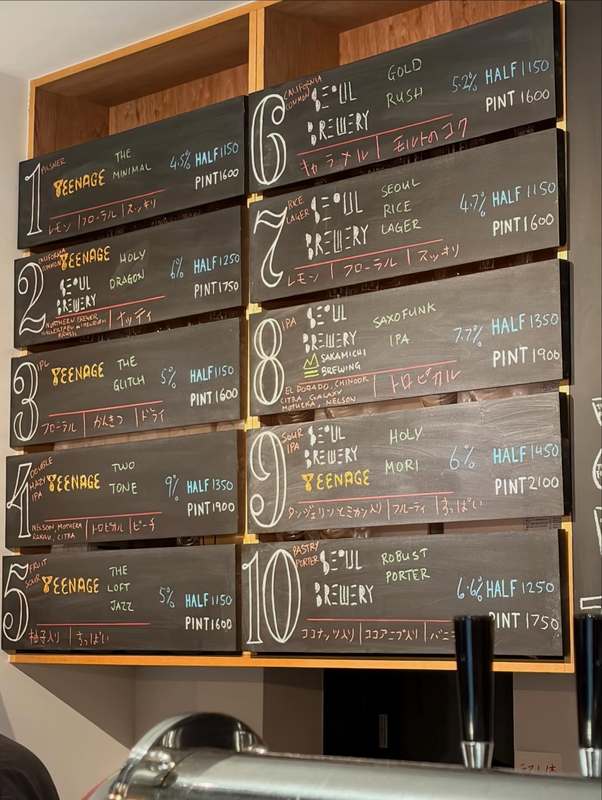 1 PILSNER
TEENAGE
THE
MINIMAL
4.5% HALF 1150
PINT 1600
レモン | フローラル | スッキリ
2 CALIFORNIA
COMMON
TEENAGE
SEOUL
BREWERY
HOLY
DRAGON
6% HALF 1250
PINT 1750
NORTHERN BREWER
HALLERTAU MITTELFRUH
ナッティ
3 IPL
TEENAGE
THE
GLITCH
5% HALF 1150
PINT 1600
フローラル | かんきつ | ドライ
4 DOUBLE
HAZY
IPA
TEENAGE
TWO
TONE
9% HALF 1350
PINT 1900
NELSON, MOTUEKA
RAKAU, CITRA
トロピカル | ピーチ
5 FRUIT
SOUR
TEENAGE
THE
LOFT
JAZZ
5% HALF 1150
PINT 1600
柚子入り | すっぱい
6 CALIFORNIA
COMMON
SEOUL
BREWERY
GOLD
RUSH
5.2% HALF 1150
PINT 1600
キャラメル | モルトのコク
7 RICE
LAGER
SEOUL
BREWERY
SEOUL
RICE
LAGER
4.7% HALF 1150
PINT 1600
レモン | フローラル | スッキリ
8 IPA
SEOUL
BREWERY
SAKAMICHI
BREWING
SAXOFUNK
IPA
7.7% HALF 1350
PINT 1900
EL DORADO, CHINOOK
CITRA, GALAXY
MOTUEKA, NELSON
トロピカル
9 SOUR
IPA
SEOUL
BREWERY
TEENAGE
HOLY
MORI
6% HALF 1450
PINT 2100
タンジェリンとミカン入り | フルーティ | すっぱい
10 PASTRY
PORTER
SEOUL
BREWERY
ROBUST
PORTER
6.6% HALF 1250
PINT 1750
ココナッツ入り | ココアニブ入り | バニ